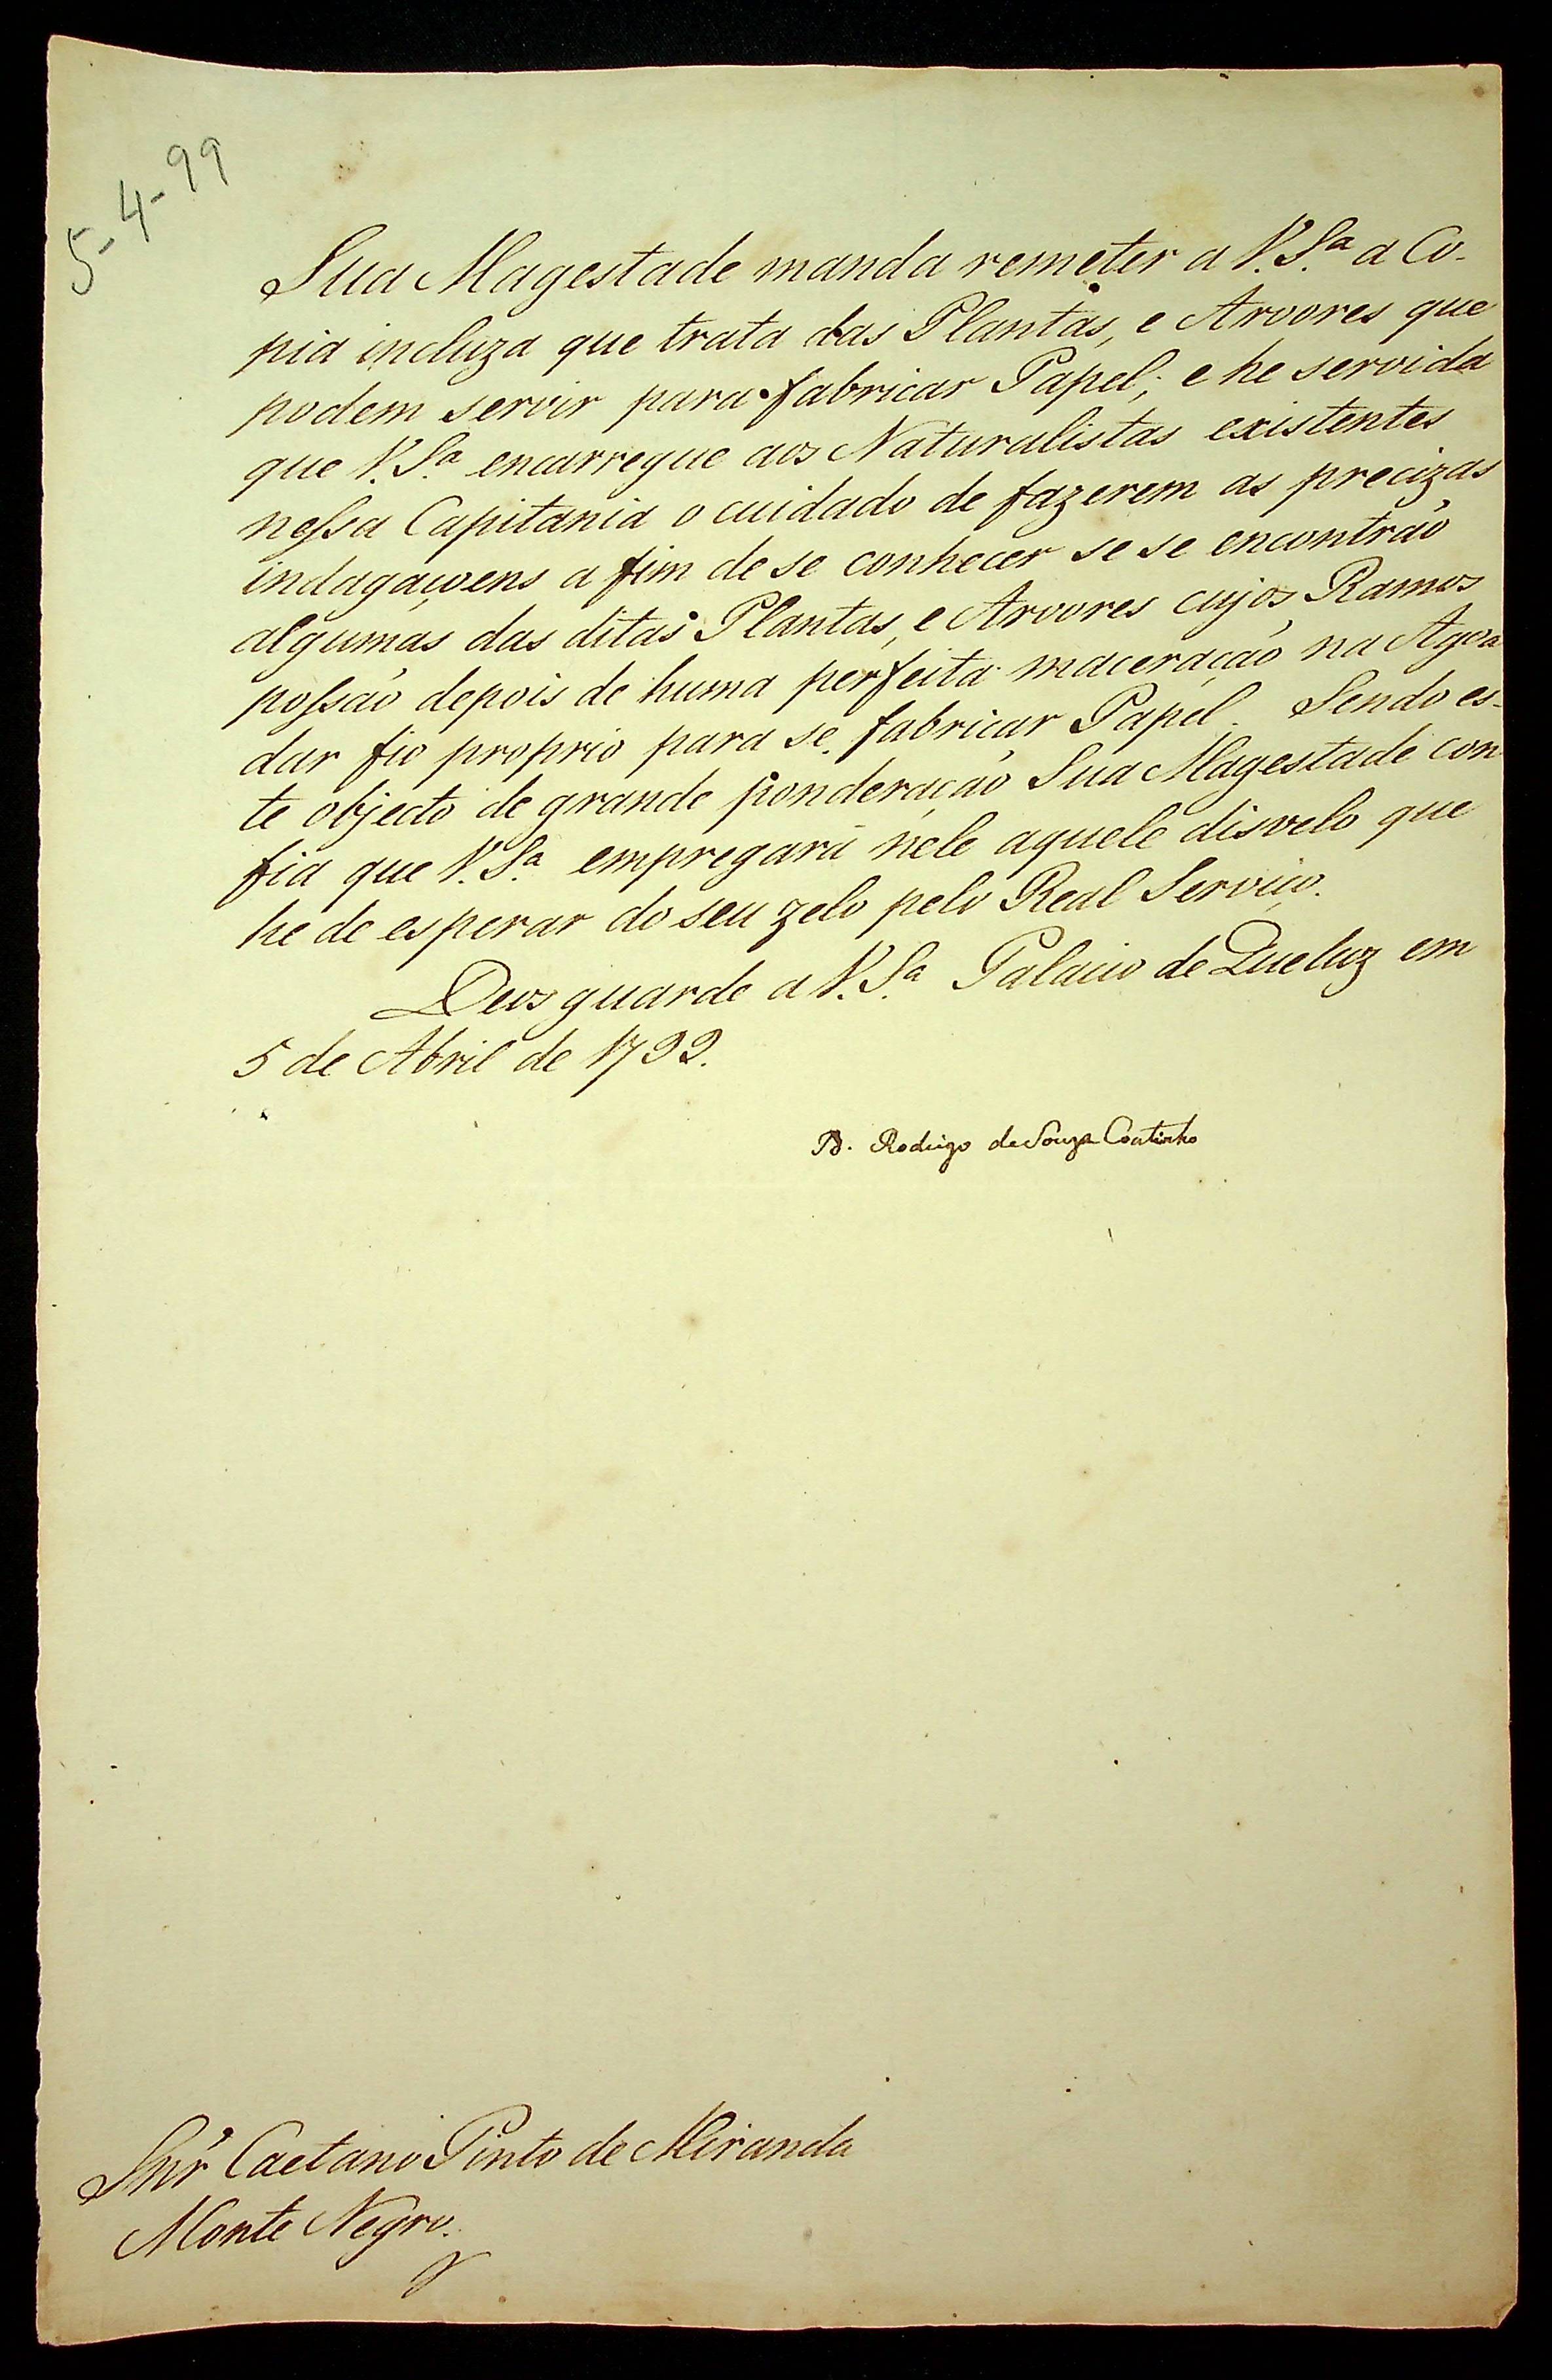 5-4-99
Sua Magestade manda remeter a V. S.ª a Co-
pia incluza que trata das Plantas, e Arvores que
podem servir para fabricar Papel; e he servida
que V. S.ª encarregue aos Naturalistas existentes
nessa Capitania o cuidado de fazerem as precizas
indagaçoens a fim de se conhecer se se encontrão
algumas das ditas Plantas, e Arvores cujos Ramos
possão depois de huma perfeita maceração na Agoa
dar fio proprio para se fabricar Papel. Sendo es-
te objecto de grande ponderação Sua Magestade con
fia que V. S.ª empregará nele aquele disvelo que
he de esperar do seu zelo pelo Real Serviço.
Deos guarde a V. S.ª Palacio de Queluz em
5 de Abril de 1799.
D. Rodrigo de Souza Coutinho
Snr̃ Caetano Pinto de Miranda
Monte Negro.